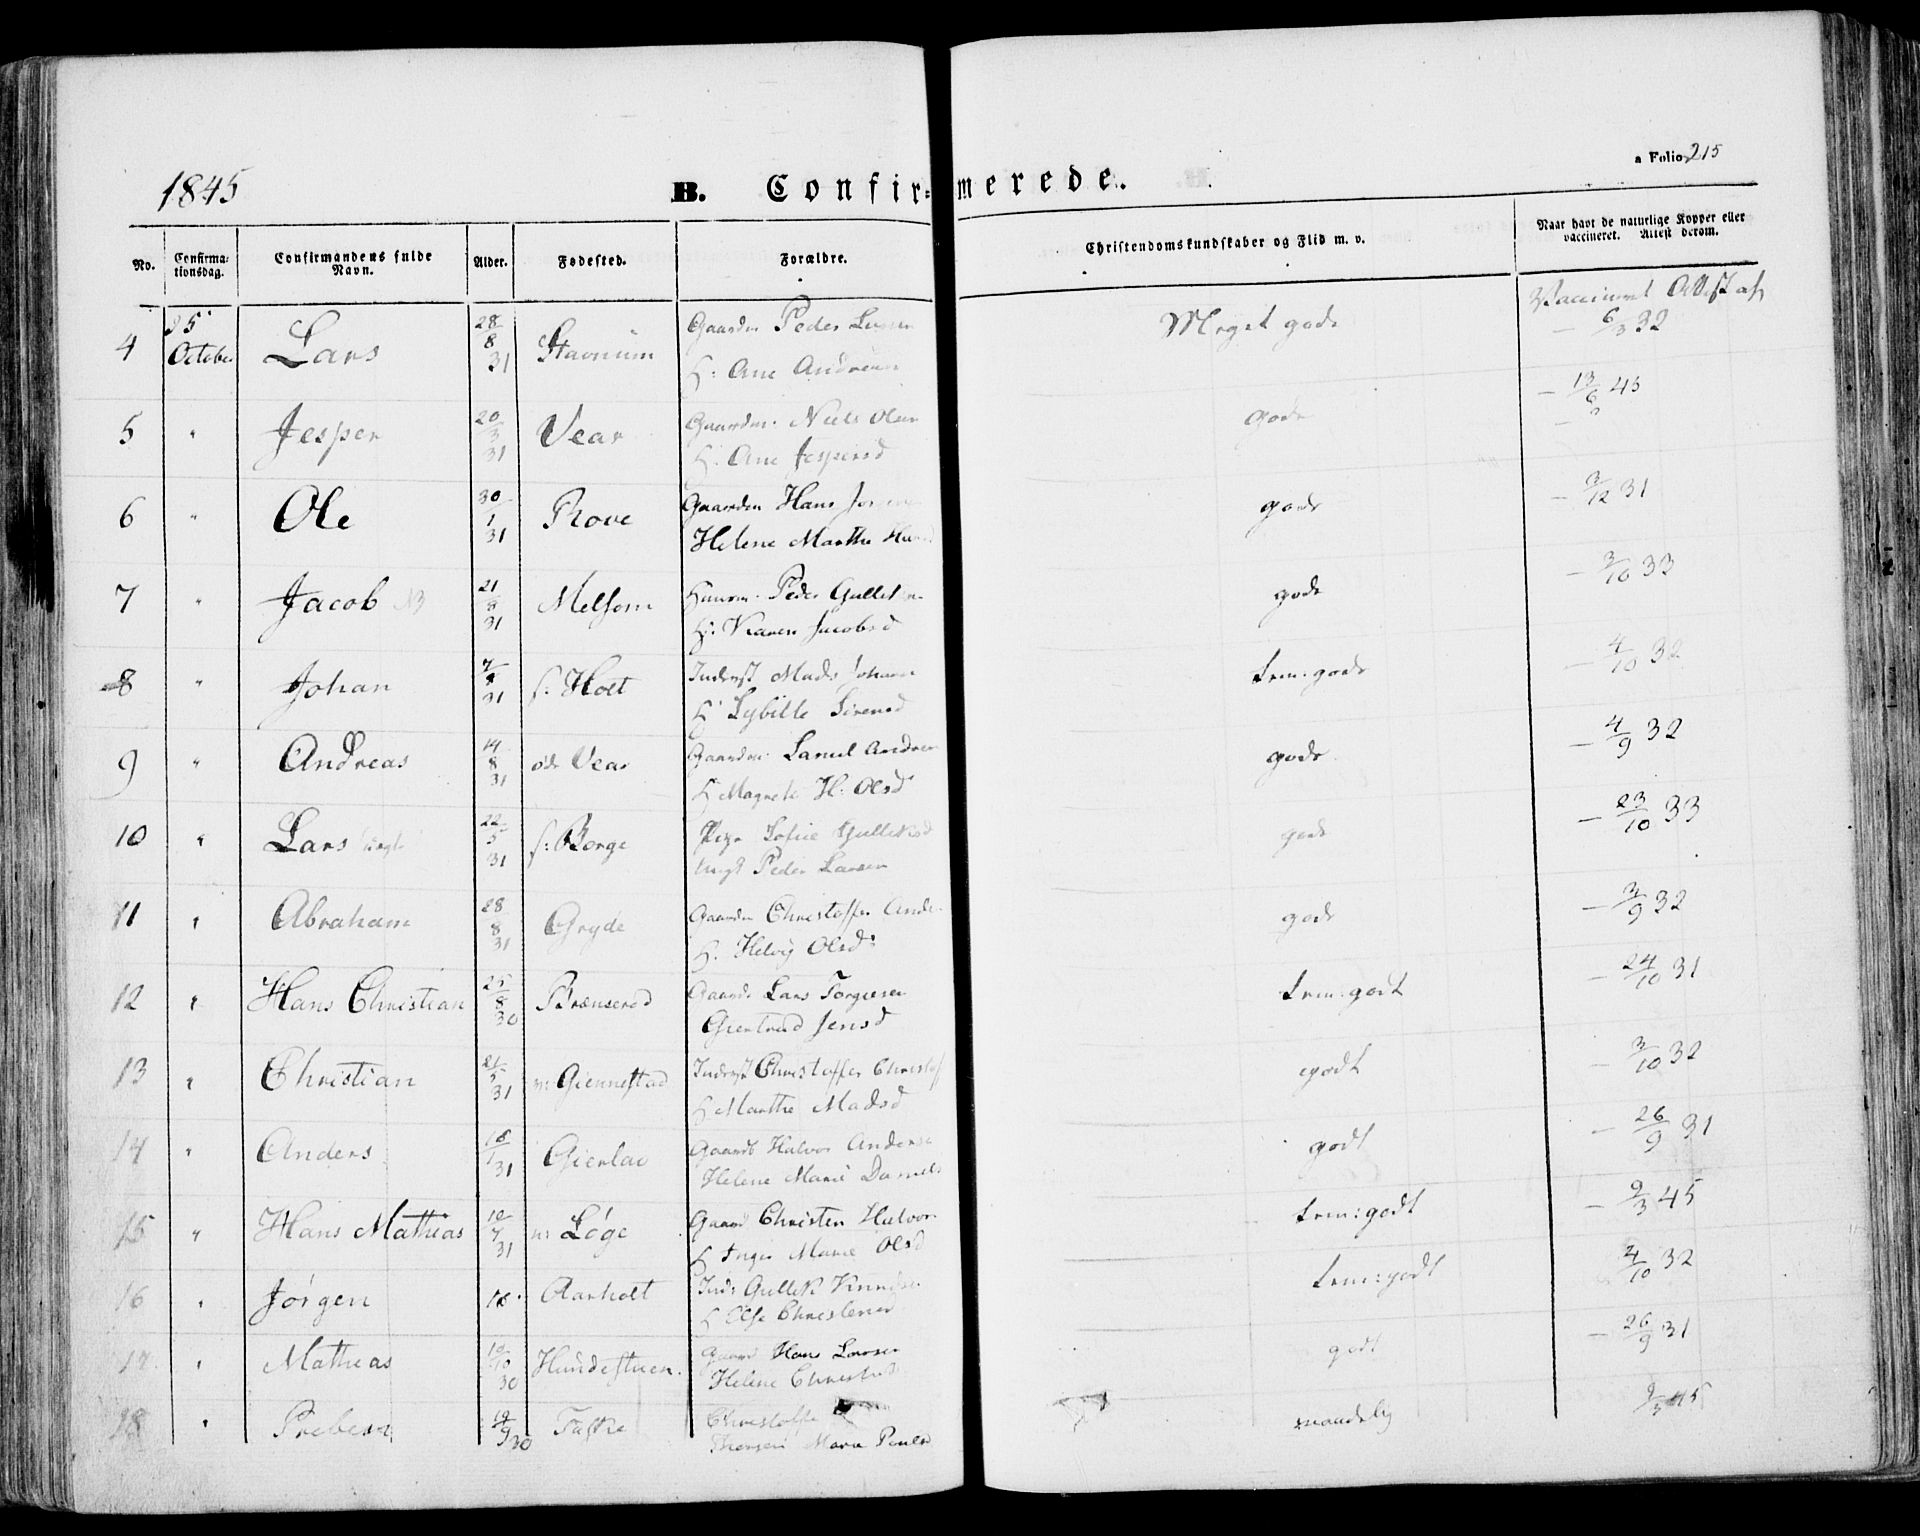 1845
B. Confirmerede.
a Folio 215
No.
Confirmationsdag.
Confirmandens fulde Navn.
Alder.
Fødested.
Forældre.
Christendomskundskaber og Flid m. v.
Naar havt de naturlige Kopper eller vaccineret. Attest derom.
Vaccineret Attest af
4 25 October Lars 28/8 31 Stavnum Gaardm Peder Meget gode - 6/3 32
H: Ane
5 " Jesper 20/3 31 Vear Gaardm: Niels Olsen gode - 13/6 45
H: Ane Jespersd
6 " Ole 30/1 31 Rove Gaardm Hans gode - 3/12 31
Helene Marthe
7 " Jacob NB 21/8 31 Melsom Huusm: Peder Gulliksen gode - 3/10 33
H: Karen Jacobsd
8 " Johan 31 s: Holt Inderst Mads Johan tem: gode - 4/10 32
H Sybille
9 " Andreas 14/8 31 Vear Gaardm: gode - 4/9 32
H Magrete H: Olsd
10 " Lars 22/5 31 s: Borge Pige Sofie Gulliksd gode - 23/10 33
Ungk Peder Larsen
11 " Abraham 28/8 31 Gryde Gaardm Christoffer Ande gode - 3/9 32
H: Helvig Olsd:
12 " Hans Christian 25/8 30 Brænserød Gaardm Lars Torgersen tem: godt - 24/10 31
Giertrud Jensd
13 " Christian 21/5 31 n: Giennestad Inderst Christoffer Christof godt - 3/10 32
H Marthe Madsd
14 " Anders 18/1 31 Gierlau Gaardb Halvor Anderse godt - 26/9 31
Helene Marie Daniels
15 " Hans Mathias 10/7 31 n: Løge Gaard Christen Halvor tem: godt - 9/3 45
H Inger Marie Olsd
16 " Jørgen 16 Aarholt Inds Gullik Knudse tem: godt 4/10 32
H Else
17 " Mathias 10/10 30 Hundestuen. Gaard Hans Larsen godt - 26/9 31
Helene
18 " Preben 19/9 30 Falke Christoffe maadelig 9/3 45
Maria Paulsd